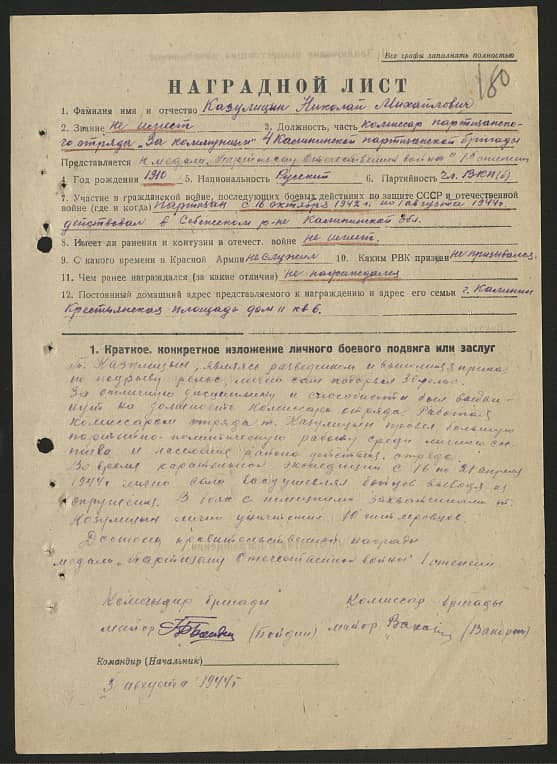 Все графы заполнять полностью
180
НАГРАДНОЙ ЛИСТ
1. Фамилия имя и отчество Казулицын Николай Михайлович
2. Звание не имеет 3. Должность, часть комиссар партизанско-
го отряда "За коммунизм" 4 Калининской партизанской бригады
Представляется к медали "Партизан Отечественной войны" 1 степени
4. Год рождения 1910 5. Национальность Русский 6. Партийность Чл. ВКП(б)
7. Участие в гражданской войне, последующих боевых действиях по защите СССР и отечественной
войне (где и когда) Партизан с 16 октября 1942 г. по 1 августа 1944 г.
действовал в Себежском р-не Калининской обл.
8. Имеет ли ранения и контузии в отечест. войне не имеет.
9. С какого времени в Красной Армии не служил 10. Каким РВК призван не призывался
11. Чем ранее награждался (за какие отличия) не награждался
12. Постоянный домашний адрес представляемого к награждению и адрес его семьи г. Калинин
Крестьянская площадь дом 11 кв 6.
1. Краткое, конкретное изложение личного боевого подвига или заслуг
т. Казулицын, являясь разведчиком и выполняя приказ
по подрыву рельс, лично сам подорвал
За отличную дисциплину и способности был выдви-
нут на должность комиссара отряда. Работая
комиссаром отряда т. Казулицын провел большую
партийно-политическую работу среди личного сос-
тава и населения района действия отряда.
Во время карательной экспедиции с 16 по 21 апреля
1944 г. лично сам воодушевлял бойцов выводя из
окружения. В боях с немецкими захватчиками т.
Казулицын лично уничтожил 10 гитлеровцев.
Достоин правительственной награды
медаль "Партизану Отечественной войны" 1 степени
Командир бригады Комиссар бригады
майор (Бойдин) майор
Командир (Начальник)
3 августа 1944 г